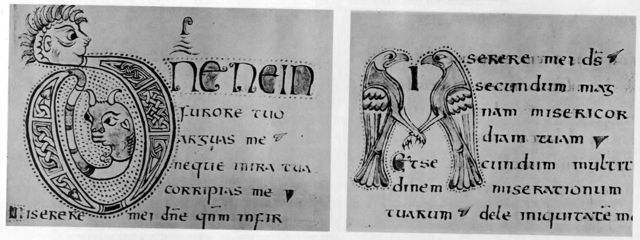 DNE NE IN
furore tuo
arguas me
neque in ira tua
corripias me
Miserere mei dn̄e qnm̄ infir
MIserere mei ds̄
secundum mag
nam misericor
diam tuam
Et secundum multit
dinem miserationum
tuarum dele iniquitatē m